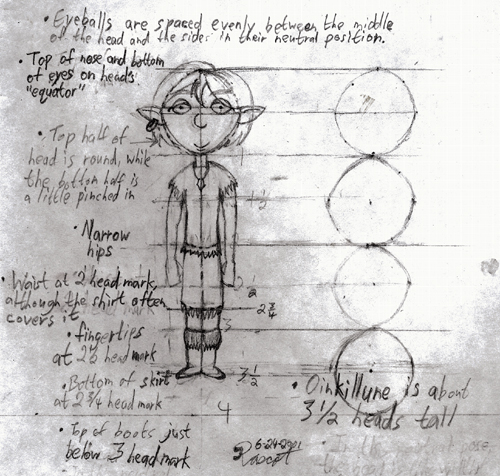 • Eyeballs are spaced evenly between the middle
of the head and the sides in their neutral position.
• Top of nose and bottom
of eyes on head's
"equator"
• Top half of
head is round, while
the bottom half is
a little pinched in
• Narrow
hips
• Waist at 2 head mark,
although the shirt often
covers it
• fingertips
at 2½ head mark
• Bottom of skirt
at 2 3/4 head mark
• Top of boots just
below 3 head mark
1 ½
2 ½
2 ¾
3
3 ½
4
• Oinkillune is about
3 ½ heads tall
6-24-2001